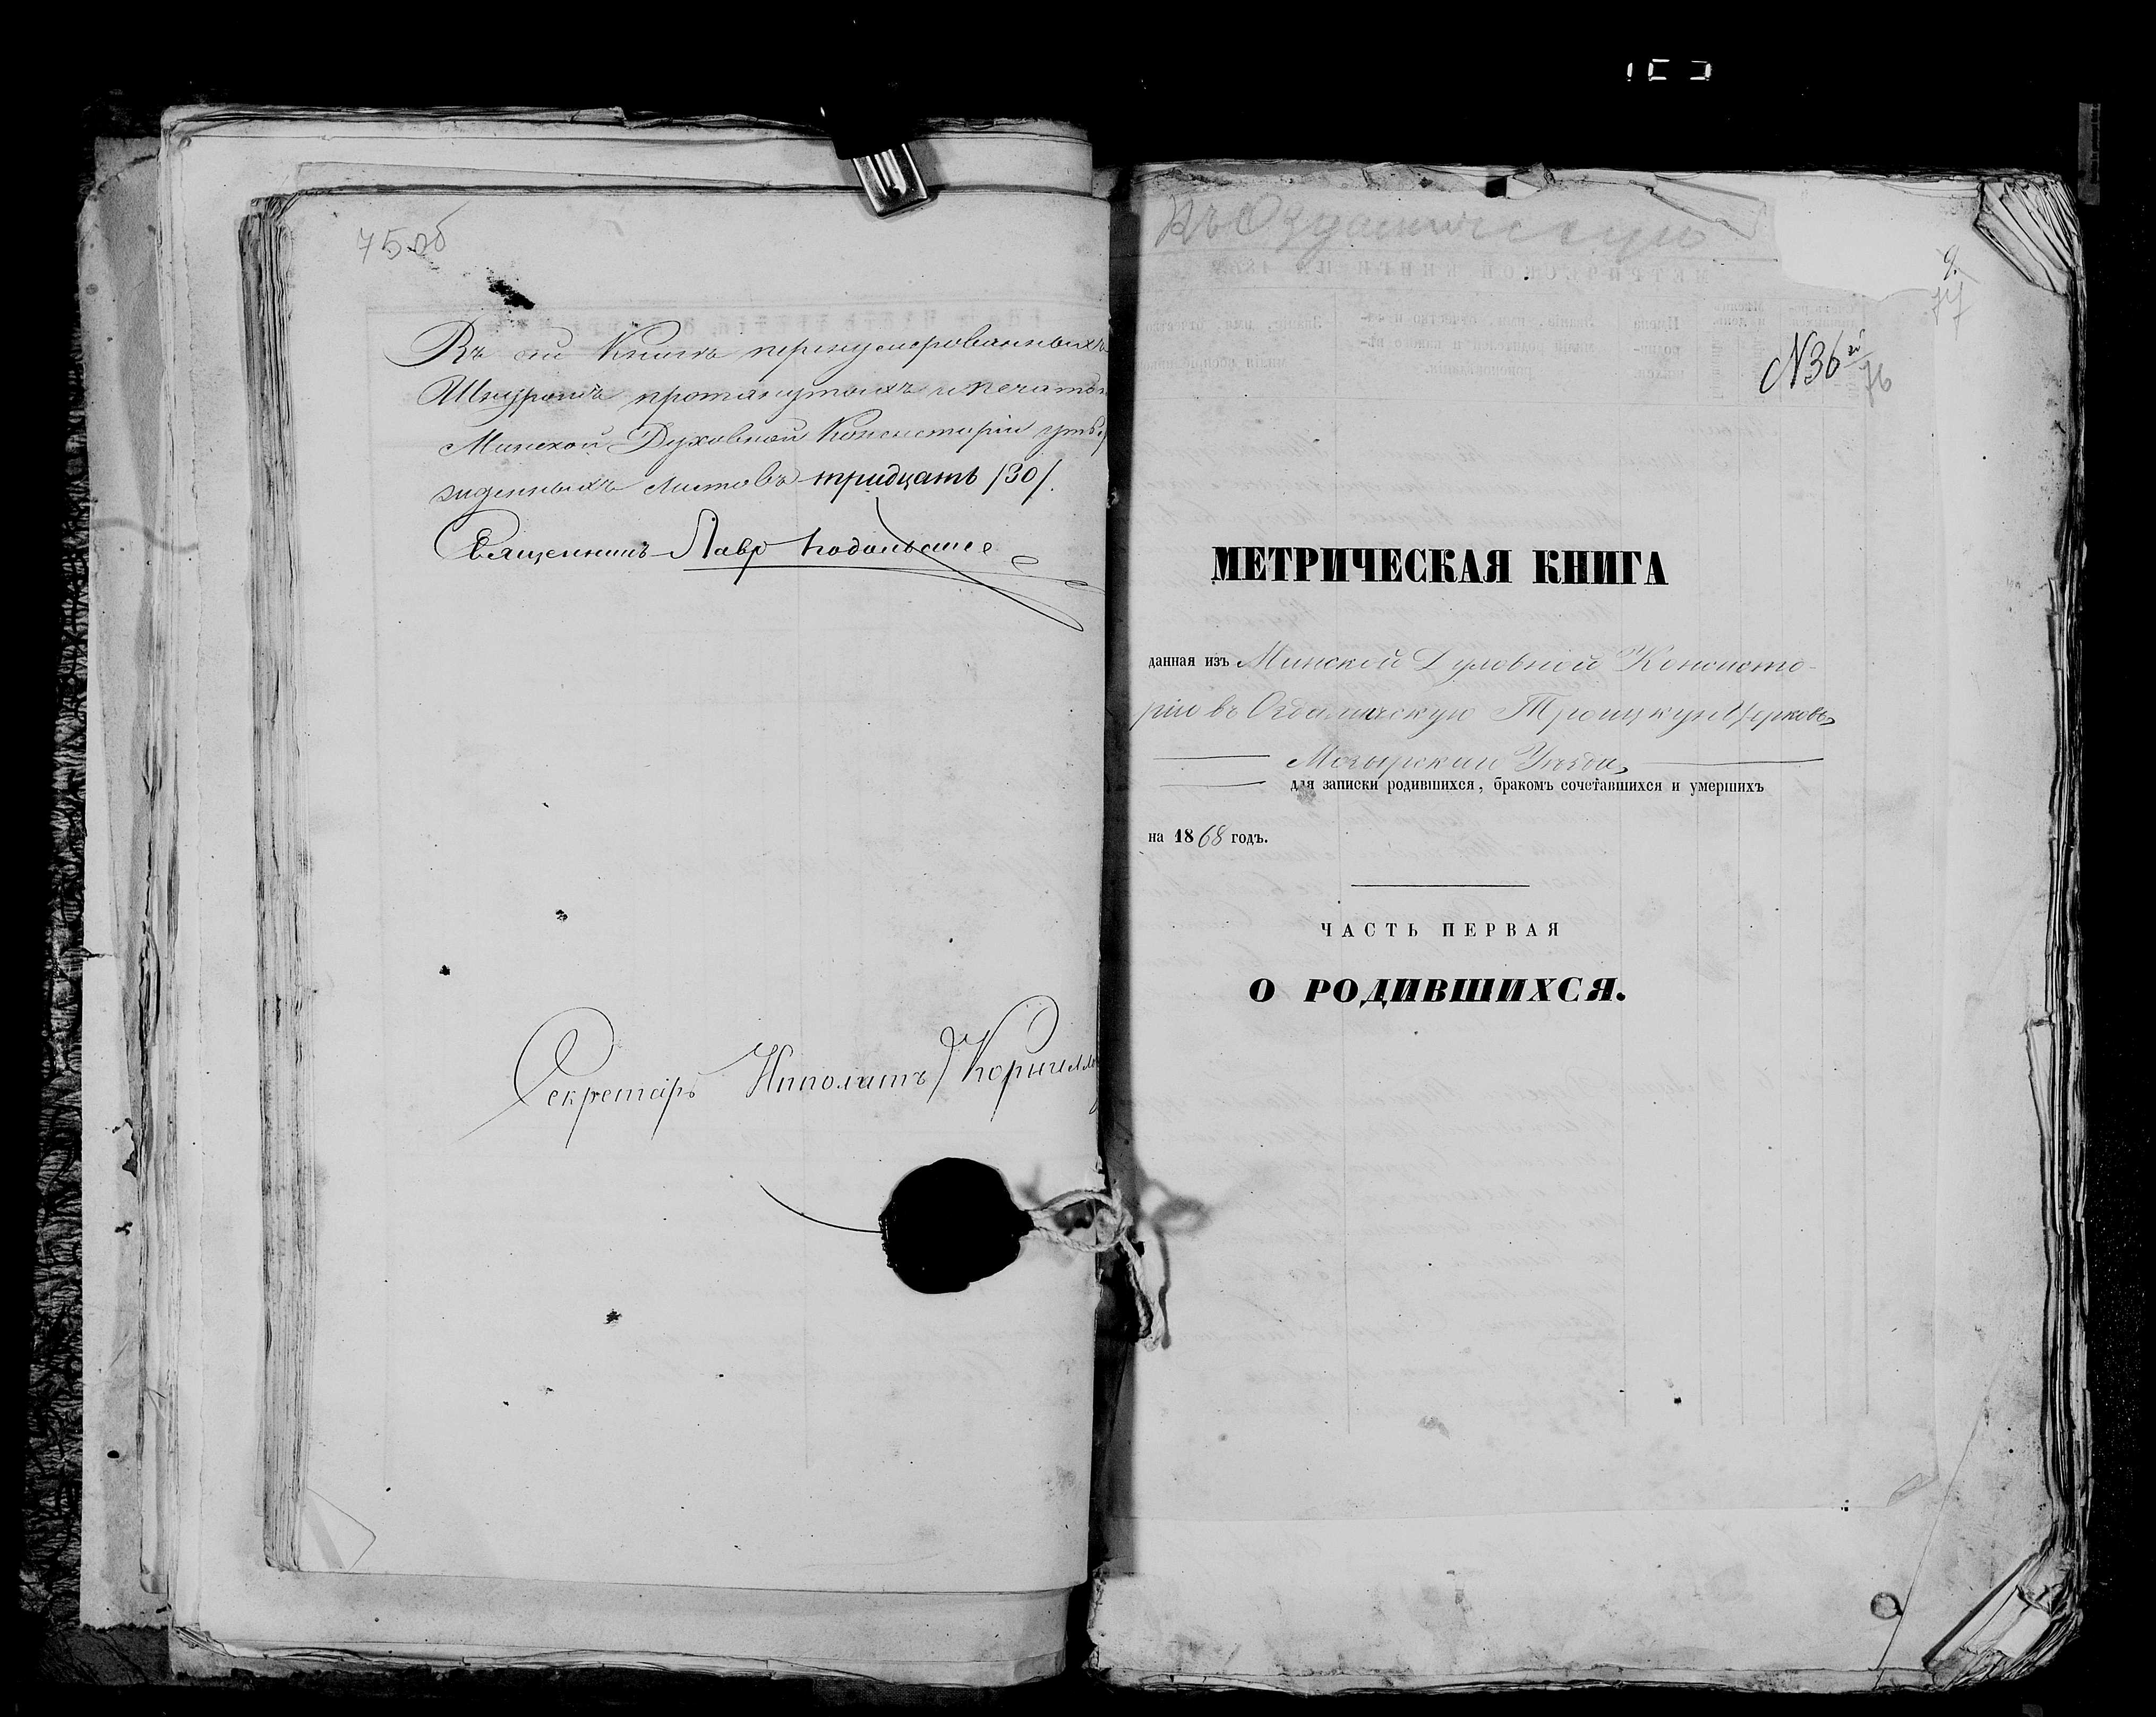 75 об
Въ сей Книгѣ перенумерованныхъ
Шнуромъ протянутыхъ и печатью
Минской Духовной Консисторіи утвер
жденныхъ листовъ тридцать /30/.
Священникъ Лавр
Секретарь Ипполитъ Корнилло
9.
77
N36й
76
МЕТРИЧЕСКАЯ КНИГА
данная изъ Минской Духовной Консисто-
ріи въ Троицкую Церковь,
Мозырскаго Уѣзда,
для записки родившихся, бракомъ сочетавшихся и умершихъ
на 1868 годъ.
ЧАСТЬ ПЕРВАЯ
О РОДИВШИХСЯ.